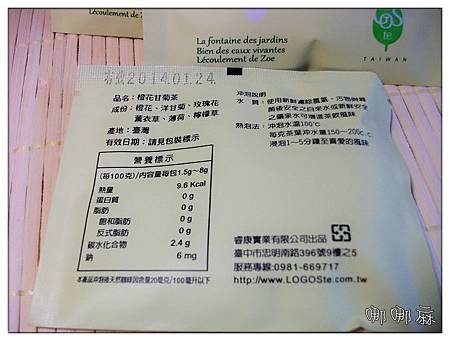 La fontaine des jardins
Bien des eaux vivantes
Lécoulement de Zoe
Lécoulement de Zoe
TAIWAN
有效2014.01.24
品名:橙花甘菊茶
成份:橙花、洋甘菊、玫瑰花
薰衣草、薄荷、檸檬草
產地:臺灣
有效日期:請見包裝標示
營養標示
(每100克)/內容量每包1.5g~8g
熱量 9.6 Kcal
蛋白質 0 g
脂肪 0 g
飽和脂肪 0 g
反式脂肪 0 g
碳水化合物 2.4 g
鈉 6 mg
本產品沖泡後天然咖啡因含量20毫克/100毫升以下
沖泡說明
水 質:使用新鮮濾除氯氣、污物與雜
菌後安全之自來水或新鮮安全
之礦泉水可增進茶飲風味
熱泡法:沖泡水溫100℃
每克茶葉沖水量150~200c.c.
浸泡1~5分鐘至喜愛的風味
睿康實業有限公司出品
臺中市忠明南路396號9樓之5
服務專線:0981-669717
http://www.LOGOSte.com.tw
娜娜麻